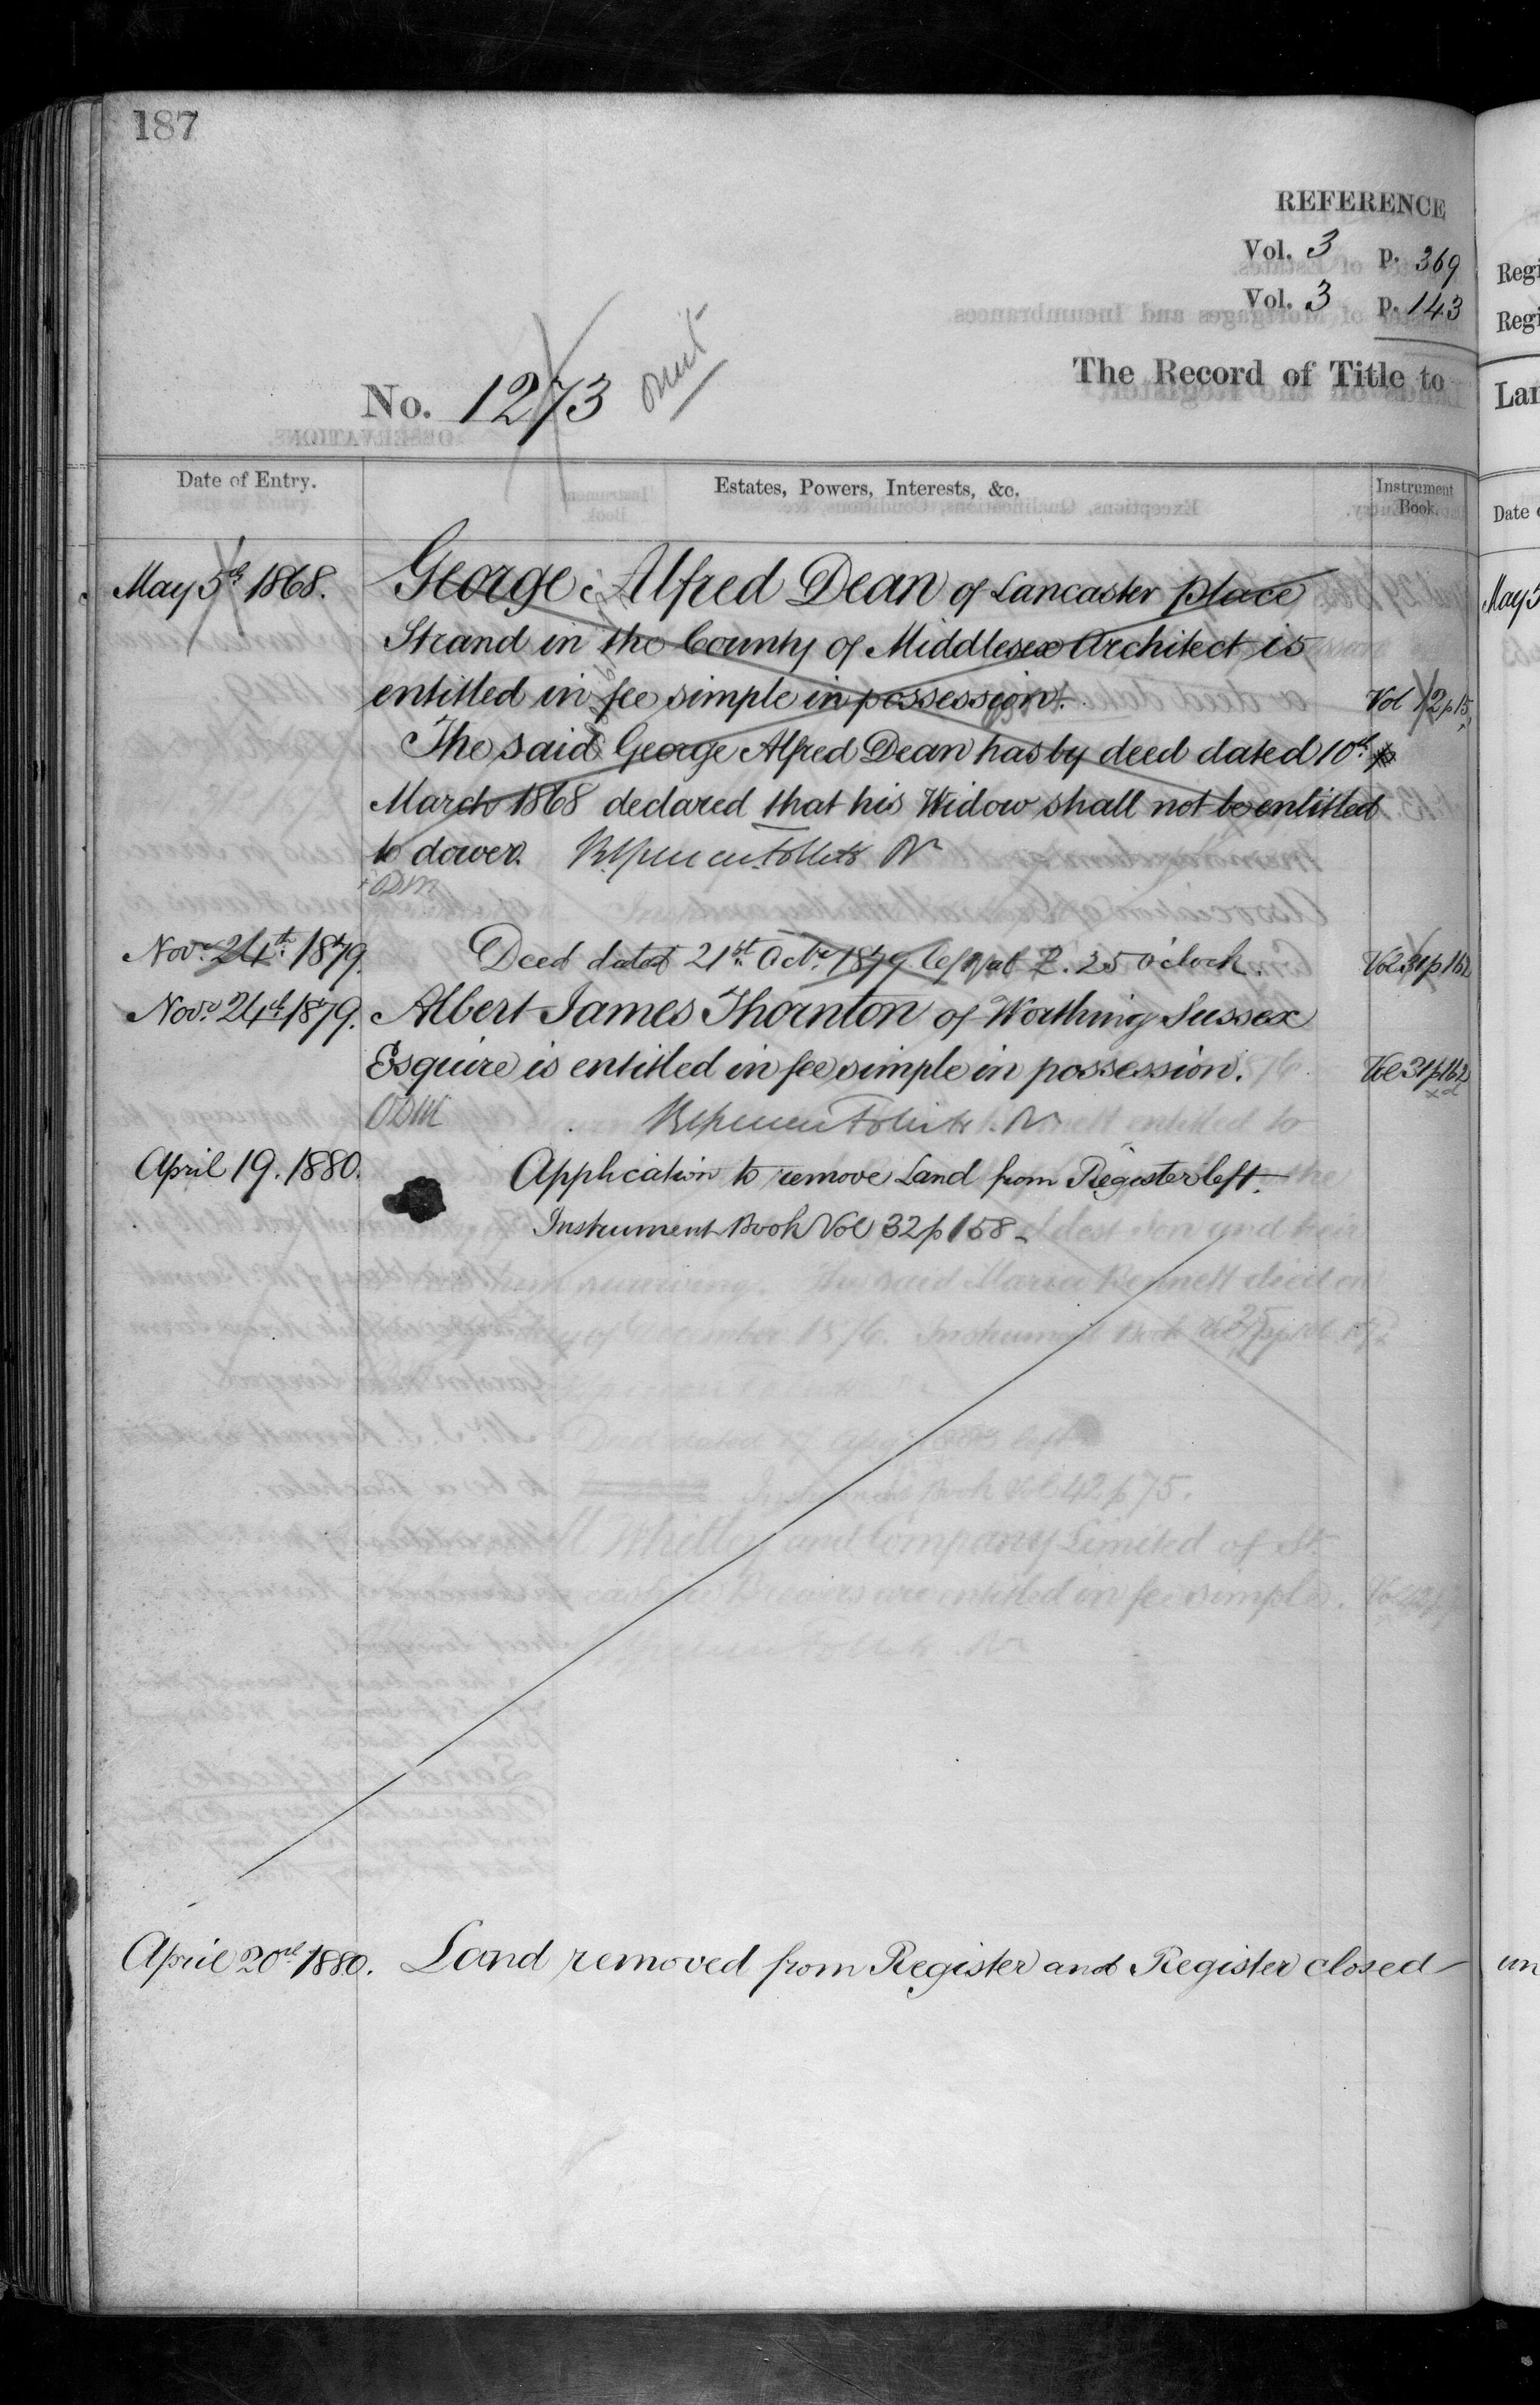 187
REFERENCE
Vol. 3 p. 369
Vol. 3 p. 143
The Record of Title to
No. 1273 omit
Date of Entry. Estates, Powers, Interests, &c. Instrument Book.
May 5th 1868. George Alfred Dean of Lancaster place
Strand in the County of Middlesex Architect is
entitled in fee simple in possession. Vol 12 p 15
The said George Alfred Dean has by deed dated 10th
March 1868 declared that his Widow shall not be entitled
to dower. Brent Spencer Follett R
Novr. 24th. 1879. Deed dated 21st. Octr. 1879 left at 2.25 o'clock. Vol 31 p 162
Novr. 24th 1879. Albert James Thornton of Worthing Sussex
Esquire is entitled in fee simple in possession. Vol 31 p 162
April 19. 1880. Application to remove Land from Register left.
Instrument Book Vol 32 p 158
April 20th 1880. Land removed from Register and Register closed
Regi
Regi
Lan
Date
May 5